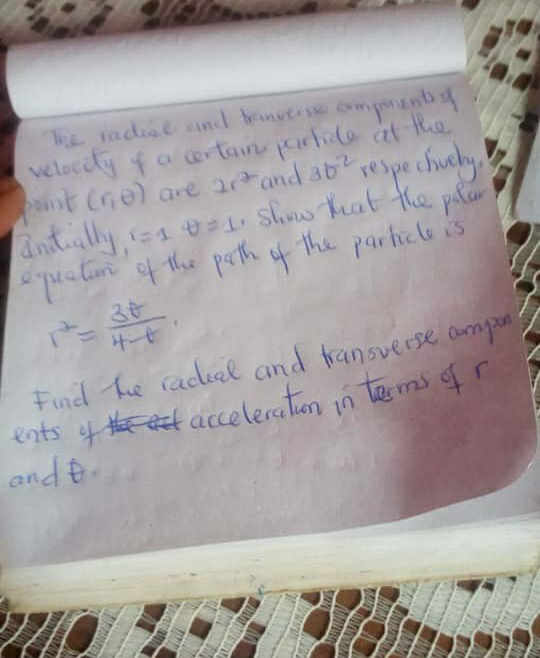 The radial and tranverse components of
velocity of a certain particle at the
point (r,θ) are 2r² and 3θ² respectively.
Initially, r=1 θ=1. Show that the polar
equation of the path of the particle is
r² = 3θ / 4-θ .
Find the radial and transverse compon
ents of acceleration in terms of r
and θ.